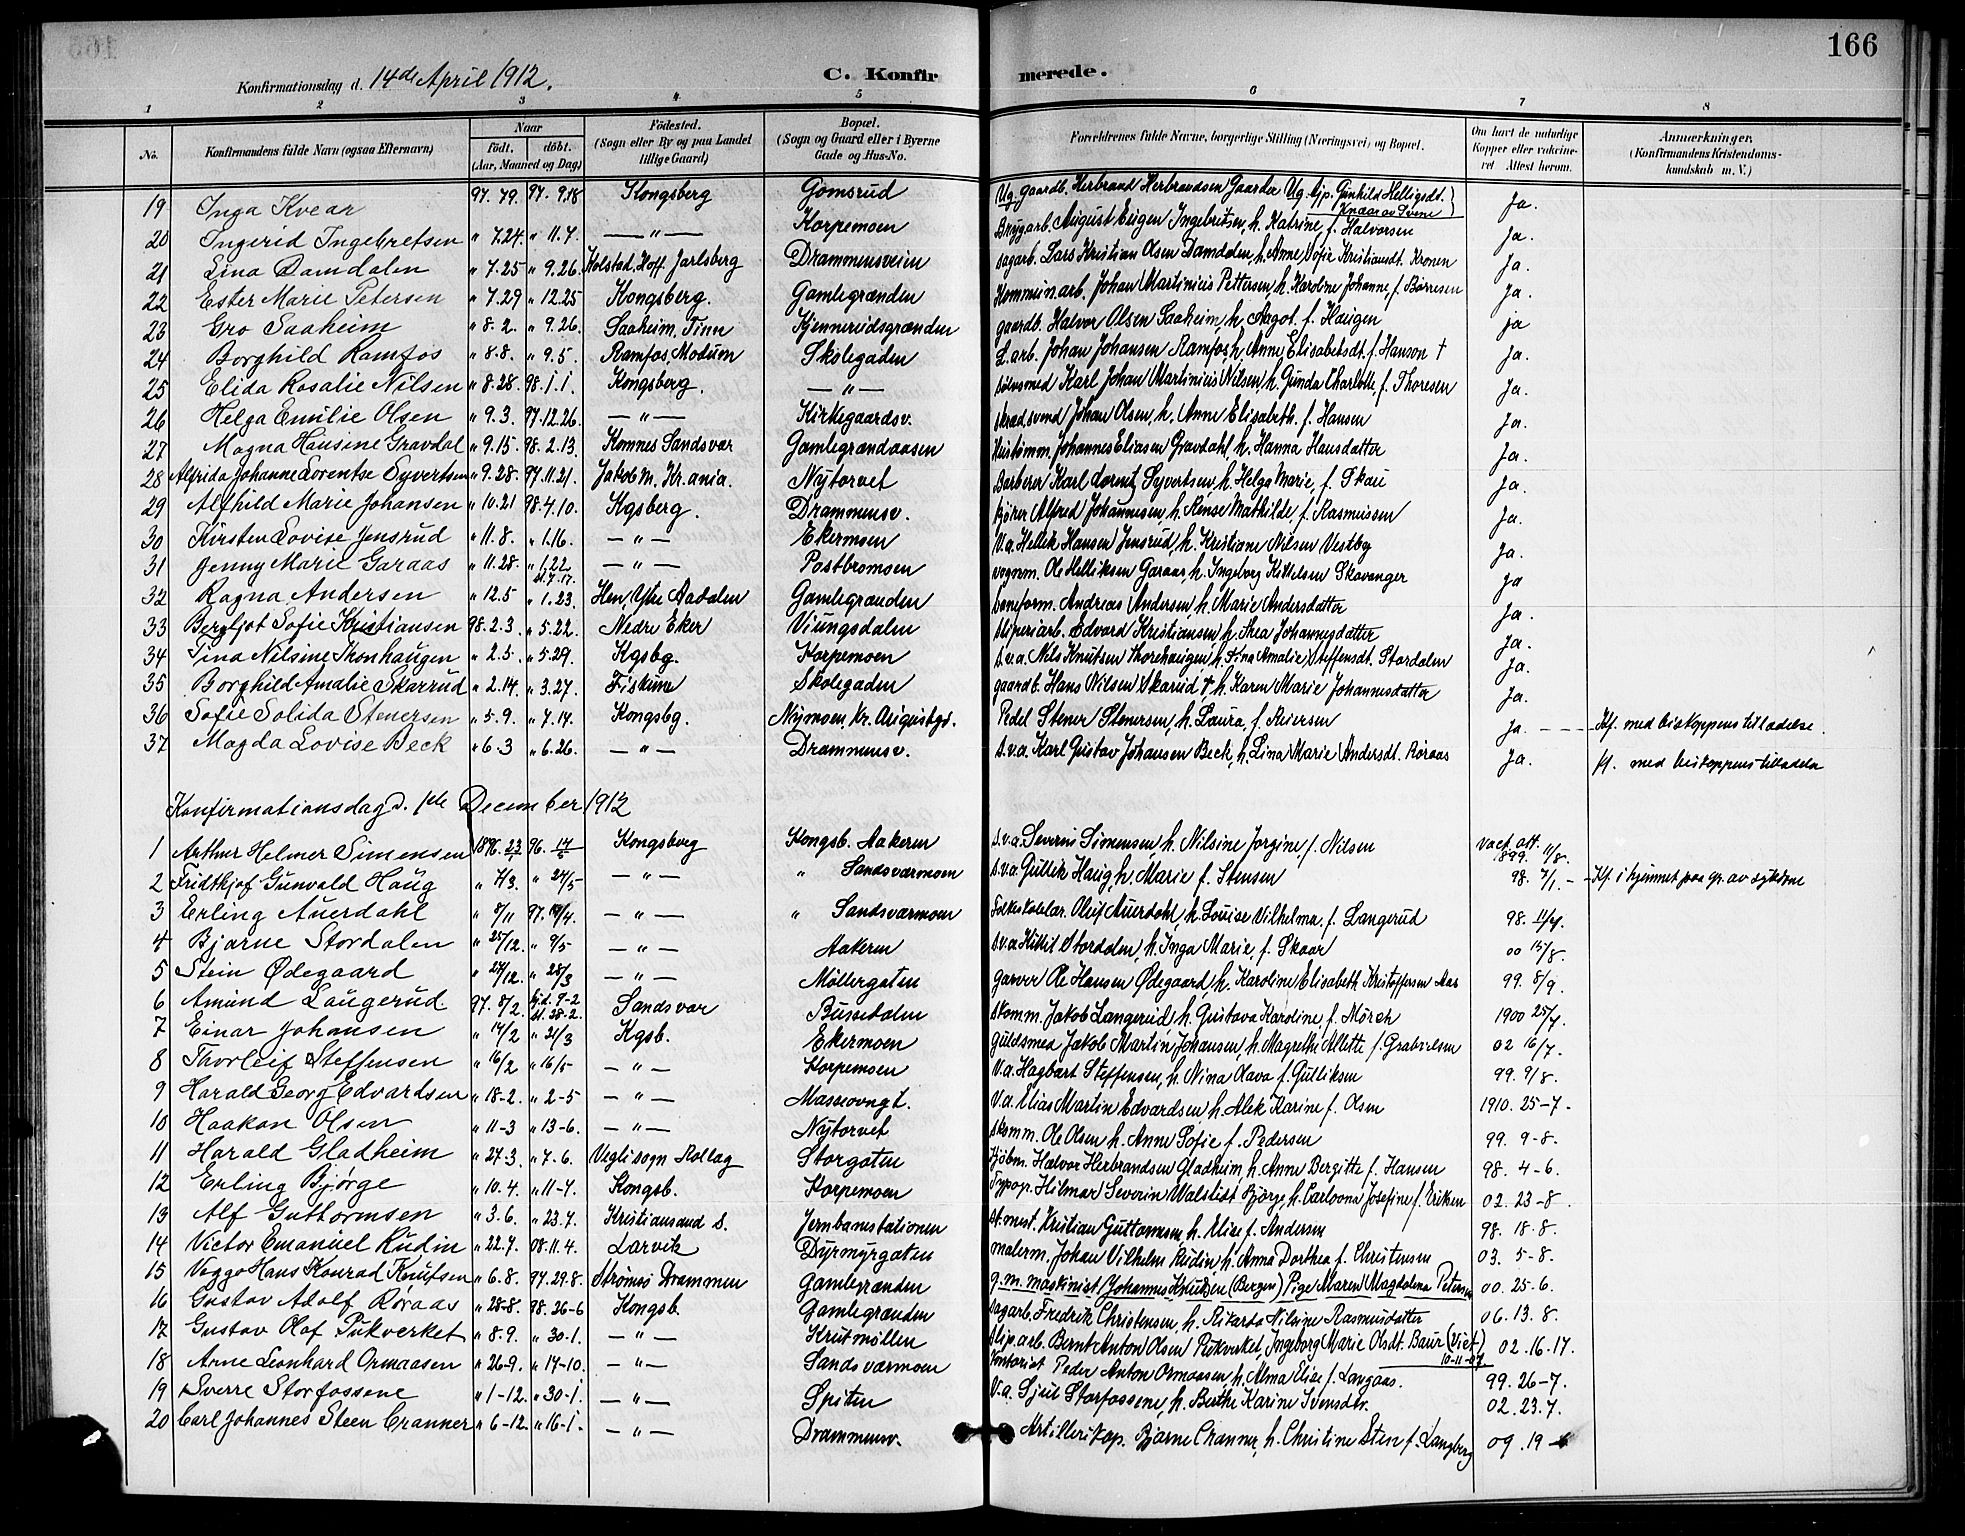 166
Konfirmationsdag d. 14de April 1912.
C. Konfirmerede.
1 2 3 4 5 6 7 8
No. Konfirmandens fulde Navn (ogsaa Efternavn) Naar født. døbt. (Aar, Maaned og Dag) Fødested. (Sogn eller By og paa Landet tillige Gaard) Bopæl. (Sogn og Gaard eller i Byerne Gade og Hus-No. Forældrenes fulde Navne, borgerlige Stilling (Næringsvei) og Bopæl. Om havt de naturlige Kopper eller vakcineret Attest herom. Anmærkninger. (Konfirmandens Kristendomskundskab m. V.)
19 Inga Kvear 97. 7.9. 97. 9.18 Kongsberg Gomsrud Ug. gaardb. Herbrand Herbrandsen Gaarder Ug. Gunhild Helligsdt. Ja.
20 Ingerid Ingebretsen " 7.24. " 11.7. — " — Korpemoen Brygarb. August Eugen Ingebretsen, h. Katrine, f. Halvorsen Ja.
21 Lina Damdalen " 7.25 " 9.26. Holstad, Hoff Jarlsberg Drammensveien Sagarb. Lars Kristian Olsen Damdalen, h. Anne Sofie Kristiansdt. Kronen Ja.
22 Ester Marie Petersen " 7.29 " 12.25 Kongsberg. Gamlegrænden Kommunarb. Johan Martinius Pettersen, h. Karoline Johanne, f. Børresen Ja.
23 Gro Saaheim " 8.2. " 9.26. Saaheim, Tinn Kjennerudsgrænden gaardb. Halvor Olsen Saaheim, h. Aagot. f. Haugen ja
24 Borghild Ramfos " 8.8. " 9.5. Ramfos, Modum Skolegaden L.arb. Johan Johansen Ramfos, h. Anne Elisabetsdt. f. Hanson † Ja.
25 Elida Rosalie Nilsen " 8.28. 98.1.1. Kongsberg. — " — Sølvsmed Karl Johan Martinius Nilsen, h. Gunda Charlotte, f. Thoresen Ja.
26 Helga Emilie Olsen " 9.3. 97.12.26. — " — Kirkegaardsv. Skræd.svend Johan Olsen, h. Anne Elisabeth. f. Hansen Ja.
27 Magna Hansine Gravdal " 9.15. 98.2.13. Komnes Sandsvær Gamlegrændaasen Hustømm. Johannes Eliasen Gravdahl, h. Hanna Hansdatter Ja.
28 Alfrida Johanne Lorentse Syvertsen " 9.28. 97.11.21. Jakob m. Kr.ania. Nytorvet Barberer Karl Lorentz Syvertsen, h. Helga Marie, f. Skau Ja.
29 Alfhild Marie Johansen " 10.21 98.4.10. Kgsberg. Drammensv. Kjører Alfred Johannesen, h. Rense Mathilde, f. Rasmussen Ja.
30 Kirsten Lovise Jensrud " 11.8. " 1.16. — " — Ekermoen V.a. Hellik Hansen Jensrud, h. Kristiane Nilsen Vestby Ja.
31 Jenny Marie Garaas " 11.28. " 1.22 — " — Postbromoen vognm. Ole Helliksen Garaas, h. Ingeborg Kittelsen Skavanger Ja
32 Ragna Andersen " 12.5 st. 7.17. " 1.23. Hen, Ytre Aadalen Gamlegrænden Baneform. Andreas Andersen, h. Marie Andersdatter Ja.
33 Bergljot Sofie Kristiansen 98.2.3. " 5.22. Nedre Eker Viungsdalen Sliperiarb. Edvard Kristiansen, h. Thea Johannesdatter Ja.
34 Tina Nilsine Thonhaugen " 2.5. " 5.29. Kgsbg. Korpemoen S.v.a. Nils Knutsen Thorehaugen, h. Tina Amalie Steffensdt. Stordalen Ja.
35 Borghild Amalie Skarrud " 2.14. " 3.27. Fiskum Skolegaden gaardb. Hans Nilsen Skarud †, h. Karen Marie Johannesdatter Ja.
36 Sofie Solida Stenersen " 5.9. " 7.17. Kongsbg. Nymoen, Kr. Augustgt. Pedel Stener Stenersen, h. Laura, f. Reiersen Ja. — — Kf. med biskoppens tilladelse.
37 Magda Lovise Beck " 6.3 " 6.26. — " — Drammensv. S.v.a. Karl Gustav Johansen Beck, h. Lina Marie Andersdt. Røraas Ja. Kf. med biskoppens tilladelse
Konfirmationsdag d. 1ste December 1912
1 Arthur Helmer Simensen 1896. 23/1 96. 17/5 Kongsberg Kongsb. Aakeren S.v.a. Severin Simensen, h. Nilsine Jørgine f. Nilsen vacc. att. 1899. 11/8.
2 Fridthjof Gunvald Haug " 7/3. " 27/5 — " — " Sandsværmoen S.v.a. Gullik Haug, h. Marie f. Stensen 98. 7/1. - - Kf. i hjemmet paa gr. av sykdom
3 Erling Auerdahl " 8/11 97. 19/4. — " — " Sandsværmoen Folkeskolelær. Oluf Auerdahl, h. Louise Vilhelma, f. Langerud 98. 11/4.
4 Bjarne Stordalen " 25/12. " 9/5 — " — Aakeren S.v.a. Kittil Stordalen, h. Inga Marie, f. Skaar 00 15/8.
5 Stein Ødegaard " 27/12. " 28/3 — " — Møllergaten garver Ole Hansen Ødegaard h. Karoline Elisabeth Kristoffersen Aas 99. 8/9.
6 Amund Laugerud 97. 8/2. hjd. 9-2 st. 28-2. Sandsvær Bussedalen Skomm. Jakob Langerud, h. Gustava Karoline f. Mørch 1900 25/4.
7 Einar Johansen " 14/2 " 21/3 Kgsb. Ekermoen Guldsmed Jakob Martin Johansen, h. Magrethe Alette f. Grabrielsen 02 16/7.
8 Thorleif Steffensen " 16/2 " 16/5 — " — Korpemoen V.a. Hagbart Steffensen, h. Nina Olava f. Gulliksen 99. 9/8.
9 Harald Georg Edvardsen " 18-2. " 2-5 — " — Massovngt. V.a. Elias Martin Edvardsen, h. Alek Karine f. Olsen 1910. 25-7.
10 Haakon Olsen " 11-3 " 13-6. — " — Nytorvet Skomm. Ole Olsen h. Anne Sofie f. Pedersen 99. 9-8.
11 Harald Gladheim " 27.3 " 7.6. Veglisogn Rollag Storgaten Kjøbm. Halvor Herbrandsen Gladheim, h. Anne Bergitte f. Hansen 98. 4-6.
12 Erling Bjørge " 10.4. " 11-7. Kongsb. Korpemoen Typogr. Hilmar Severin Walstedt Bjørge, h. Carloona Josefine f. Eriksen 02. 23-8.
13 Alf Guttormsen " 3.6. " 23.7. Kristiansand S. Jernbanestationen St.mest. Kristian Guttormsen, h. Elise f. Andersen 98. 18.8.
14 Victor Emanuel Rudin " 22.7. 08.11.4. Larvik Dyrmyrgaten malerm. Johan Vilhelm Rudin h. Anna Dorthea f. Christensen 03. 5-8.
15 Viggo Hans Konrad Knutsen " 6.8. 97.29.8. Strømsø Drammen Gamlegrænden g.m. maskinist Johannes Knudsen (Bergen) Pige Maren Magdalena Petersen 00. 25-6.
16 Gustav Adolf Røraas " 28-8. 98.26-6 Kongsb. Gamlegrænden Sagarb. Fredrik Christensen, h. Rikarda Nilsine Rasmusdatter 06. 13. 8.
17 Gustav Olaf Pukverket " 8.9. " 30-1. — " — Krutmøllen Slip.arb. Bernt Anton Olsen Pukverket, Ingeborg Marie Olsdt. Baur (Viet 10-11-07) 02.16-17.
18 Arne Leonhard Ormaasen " 26-9. " 17-10. — " — Sandsværmoen Kontorist Peder Anton Ormaasen, h. Alma Elise f. Langaas. 99. 26-7.
19 Sverre Storfossene " 1-12. " 30-1 — " — Spiten V.a. Sjul Storfossene, h. Berthe Karine Svensdtr. 02. 23.7.
20 Carl Johannes Steen Cranner " 6-12. " 16-1. — " — Drammensv. Artillerikap. Bjarne Cranner, h. Christine Sten f. Langberg 09. 19-6